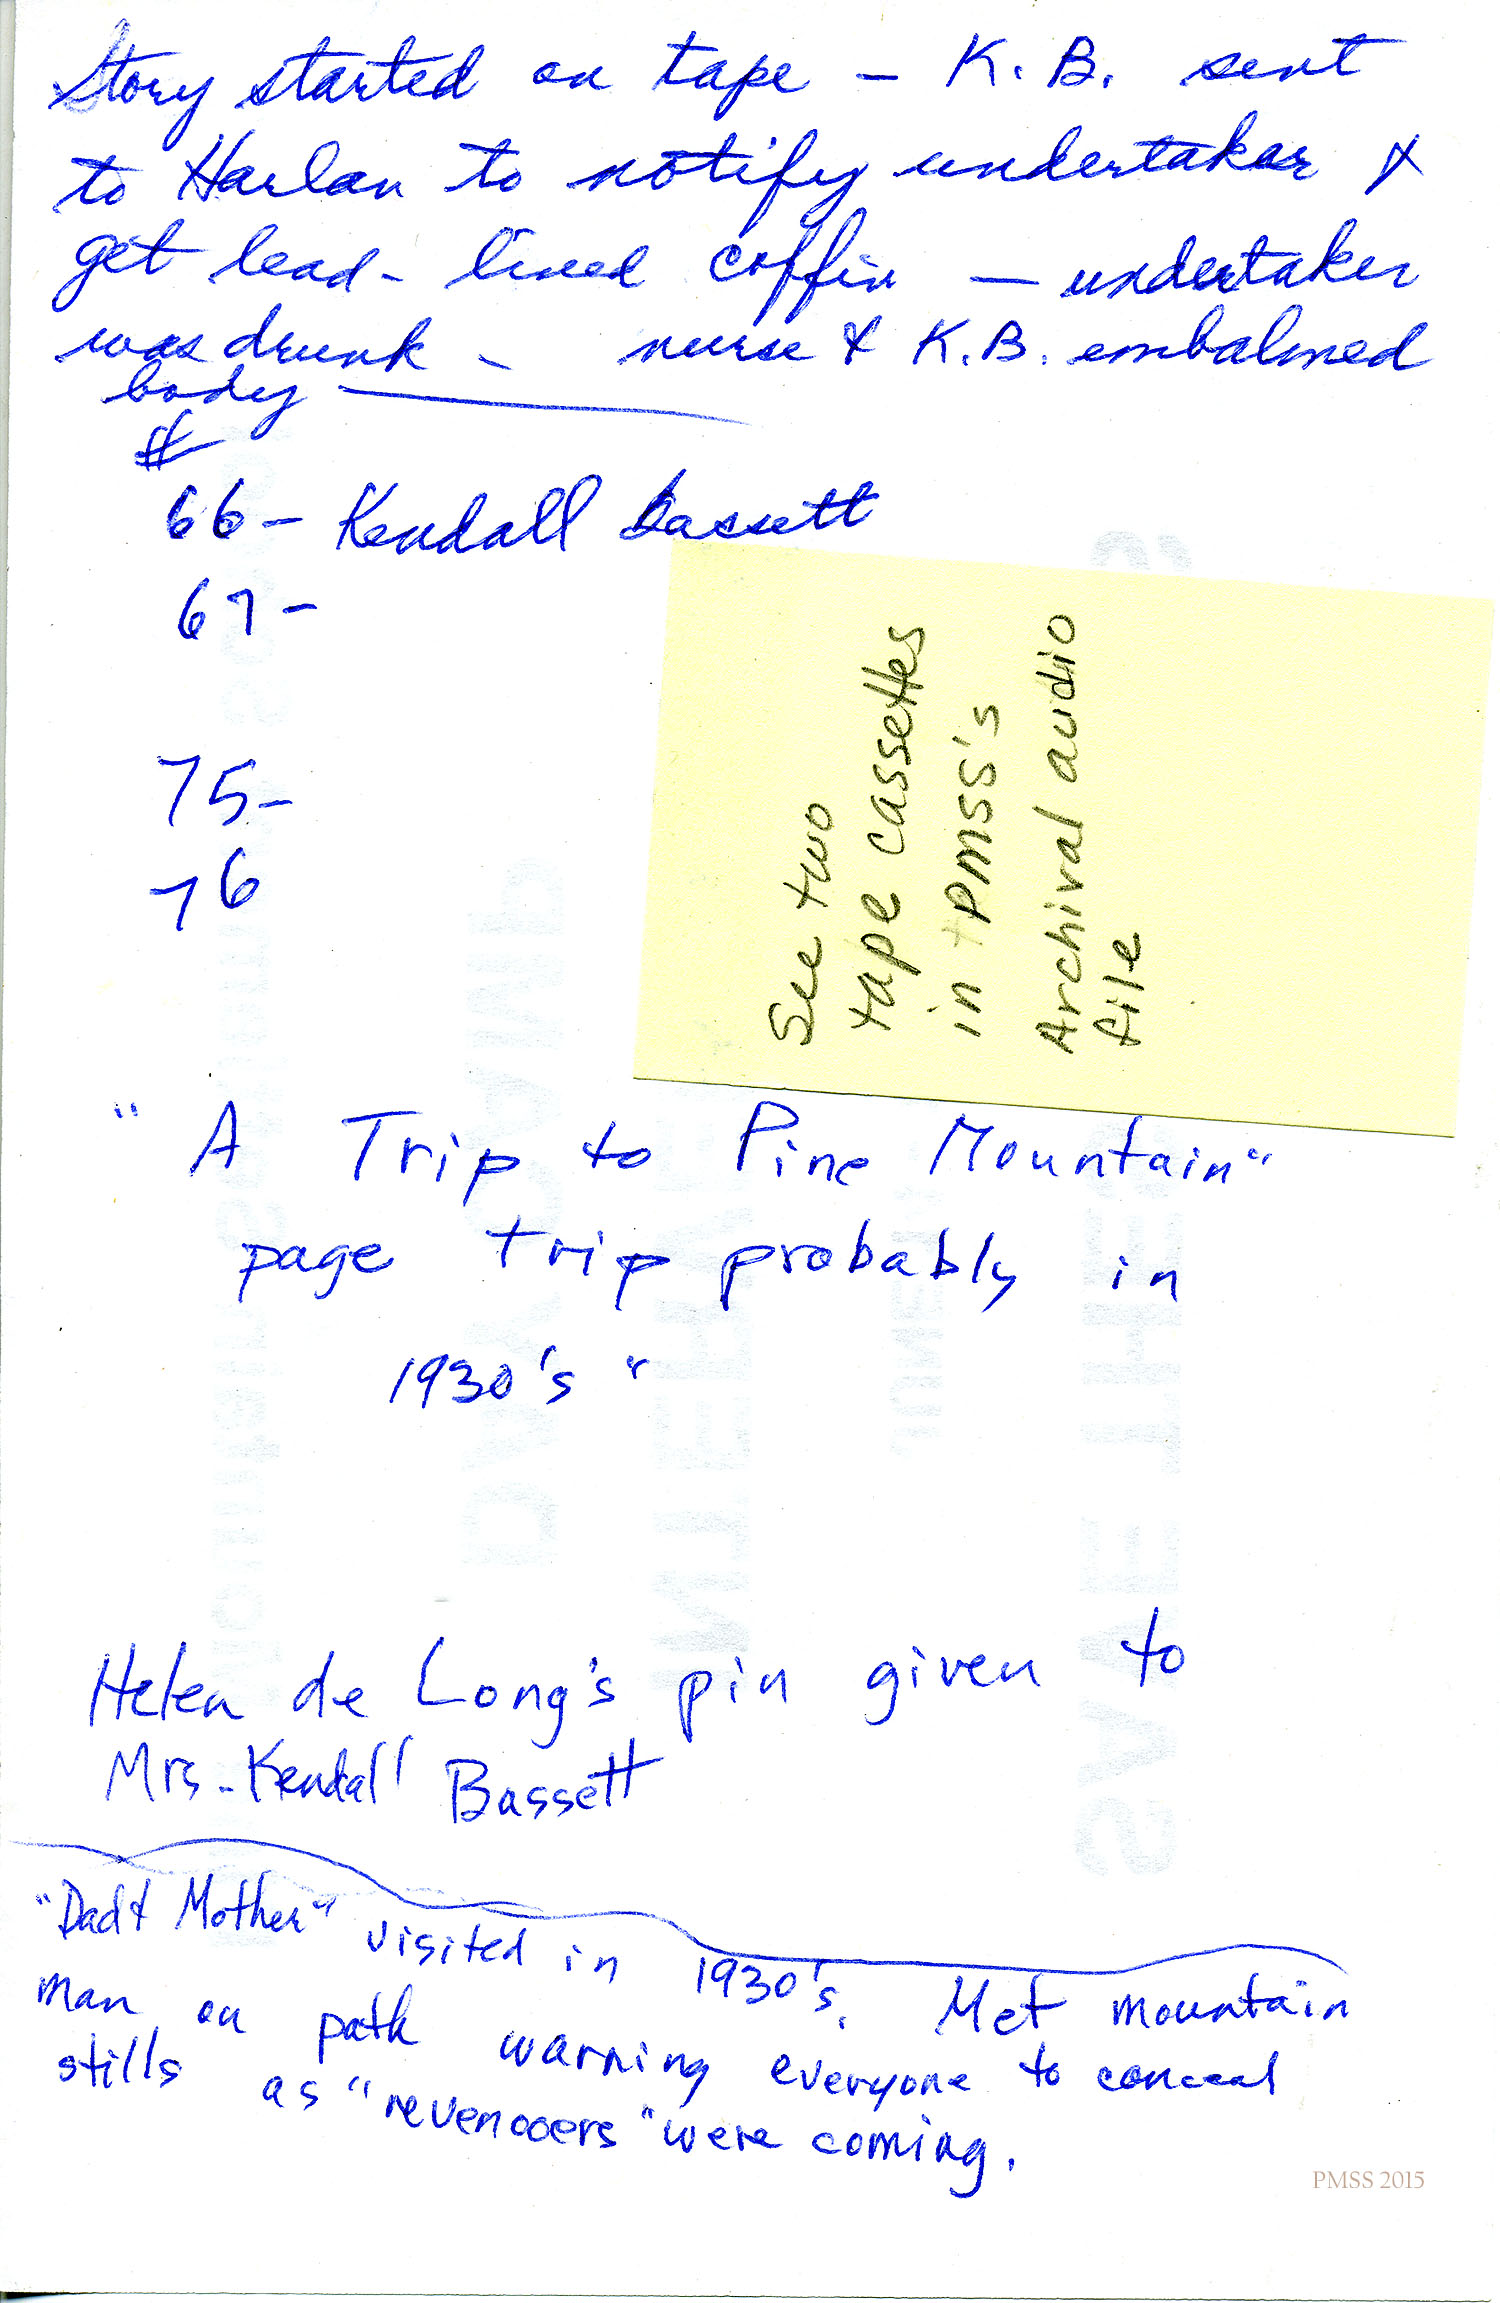 Story started on tape – K. B. sent
to Harlan to notify undertaker &
get lead-lined coffin — undertaker
was drunk – nurse & K.B. embalmed
body
#
66 – Kendall Bassett
67 –
75 –
76
See two
tape cassettes
in PMSS's
Archival audio
file
"A Trip to Pine Mountain"
page trip probably in
1930's "
Helen de Long's pin given to
Mrs. Kendall Bassett
"Dad & Mother" visited in 1930's. Met mountain
man on path warning everyone to conceal
stills as "revenooers" were coming.
PMSS 2015